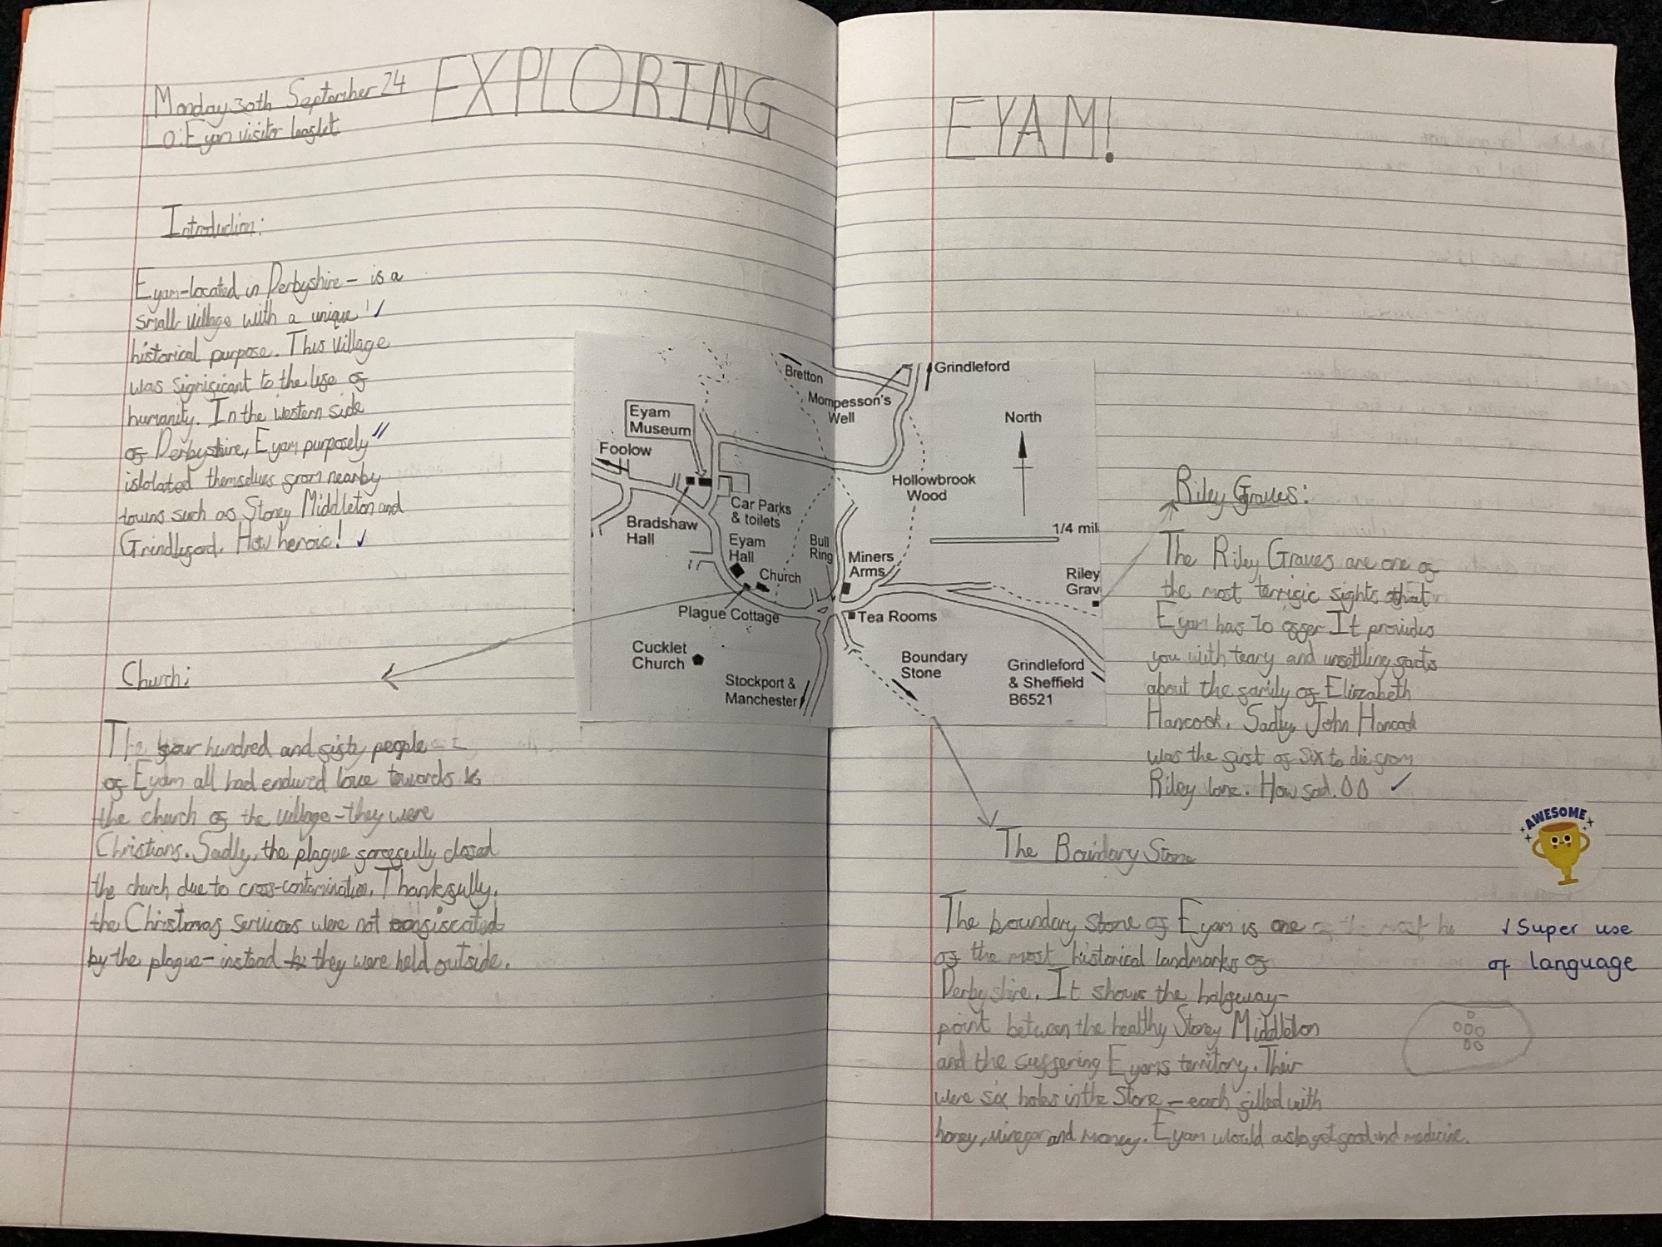 Monday 30th September 24
L.O: Eyam visitor leaflet
EXPLORING EYAM!
Introduction:
Eyam-located in Derbyshire- is a
small village with a unique
historical purpose. This village
was significant to the life of
humanity. In the western side
of Derbyshire, Eyam purposely
islolated themselves from nearby
towns such as Stoney Middleton and
Grindleford. How heroic!
Church:
The four hundred and fisty people
of Eyam all had endured love towards
the church of the village-they were
Christians. Sadly, the plague forcefully closed
the church due to cross-contamination. Thankfully,
the Christmas services were not confiscated
by the plague- instead they were held outside.
Bretton
Grindleford
Mompesson's
Well
Eyam
Museum
North
Foolow
Hollowbrook
Wood
Car Parks
& toilets
Bradshaw
Hall
1/4 mil
Eyam
Hall
Bull
Ring
Miners
Arms
Church
Riley
Grav
Plague Cottage
Tea Rooms
Cucklet
Church
Boundary
Stone
Grindleford
& Sheffield
B6521
Stockport &
Manchester
Riley Graves:
The Riley Graves are one of
the most terrific sights that
Eyam has to offer It provides
you with teary and unsettling facts
about the family of Elizabeth
Hancock. Sadly, John Hancock
was the first of six to die from
Riley lane. How sad.
The Boundary Stone
The boundary stone of Eyam is one
of the most historical landmarks of
Derbyshire. It shows the halfway-
point between the healthy Stoney Middleton
and the suffering Eyam's territory. Their
were six holes in the Stone - each filled with
honey, vinegar and money. Eyam would also get food and medicine.
AWESOME
Super use
of language